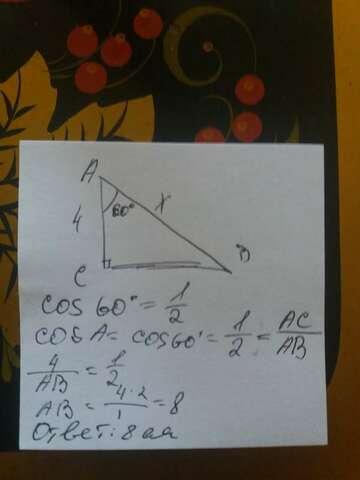 A
4 60° x
C B
cos 60° = 1/2
cos A = cos 60° = 1/2 = AC/AB
4/AB = 1/2
AB = 4·2/1 = 8
Ответ: 8 см